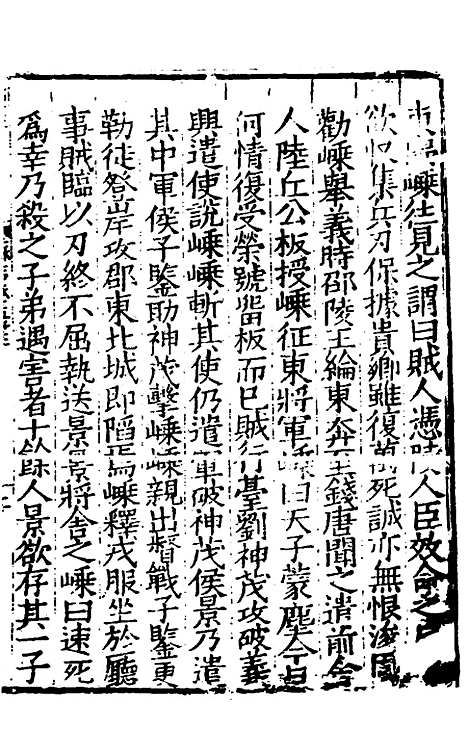 嵊往見之謂曰賊人憑陵人臣效命之日
欲收集兵刃保據貴鄉雖復萬死誠亦無恨浚固
勸嵊舉義時邵陵王綸東奔至錢唐聞之遣前令
人陸丘公板授嵊征東將軍嵊曰天子蒙塵今日
何情復受榮號留板而已賊行臺劉神茂攻破義
興遣使說嵊嵊斬其使仍遣軍破神茂侯景乃遣
其中軍侯子鑒助神茂擊嵊嵊親出督戰子鑒更
勒徒登岸攻郡東北城即陷焉嵊釋戎服坐於廳
事賊臨以刃終不屈執送景景將舍之嵊曰速死
爲幸乃殺之子弟遇害者十餘人景欲存其一子